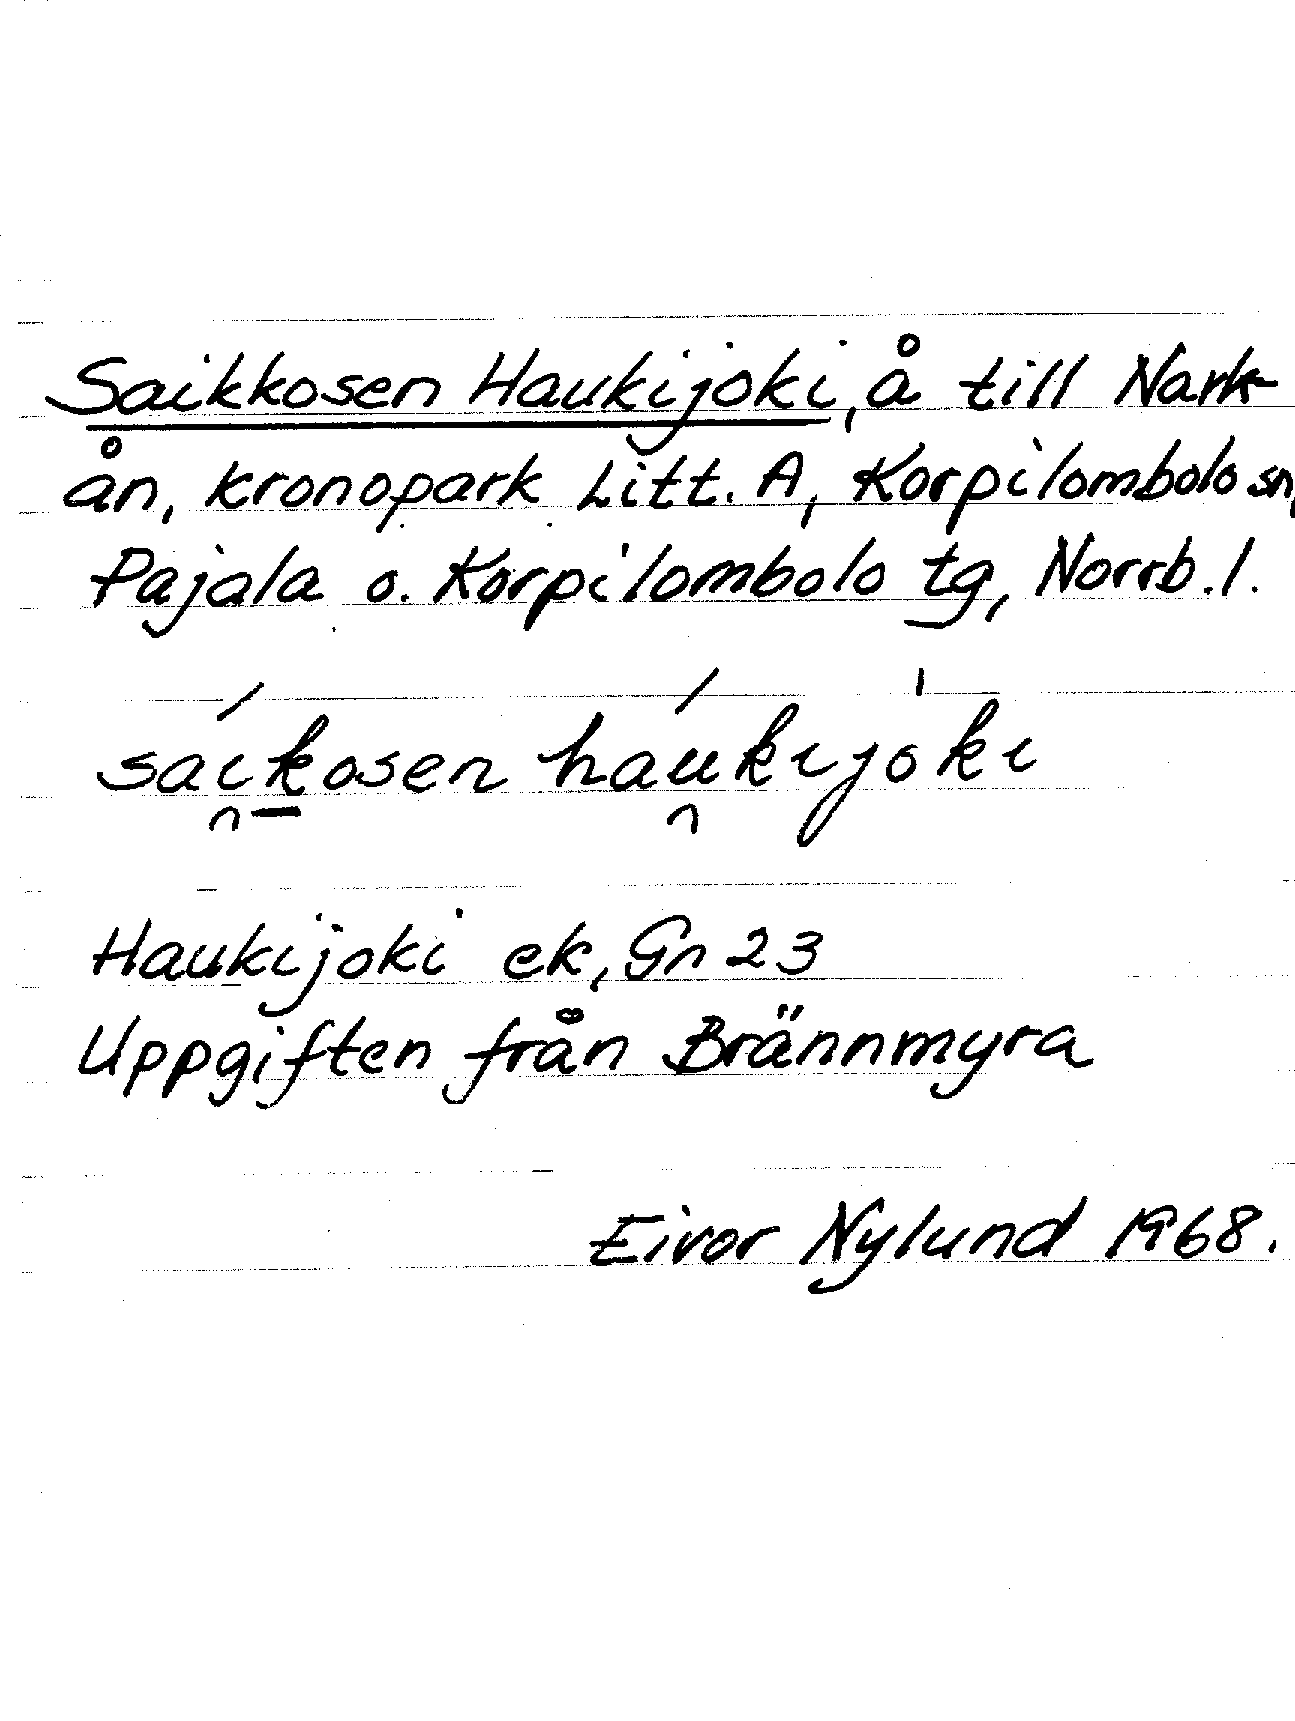 Saikkosen Haukijoki, å till Nark-
ån, kronopark Litt. A, Korpilombolo sn,
Pajala o. Korpilombolo tg, Norrb. l.
sái̯k̲osen háu̯kijo̍ki
Haukijoki ek, Gn 23
Uppgiften från Brännmyra
Eivor Nylund 1968.